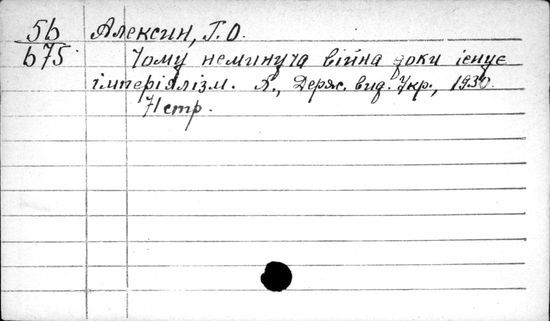 5б Алексин, Г.О.
б75 Чому неминуча війна доки існує
імперіялізм. Х., Держ. вид. Укр., 1930.
71 стр.